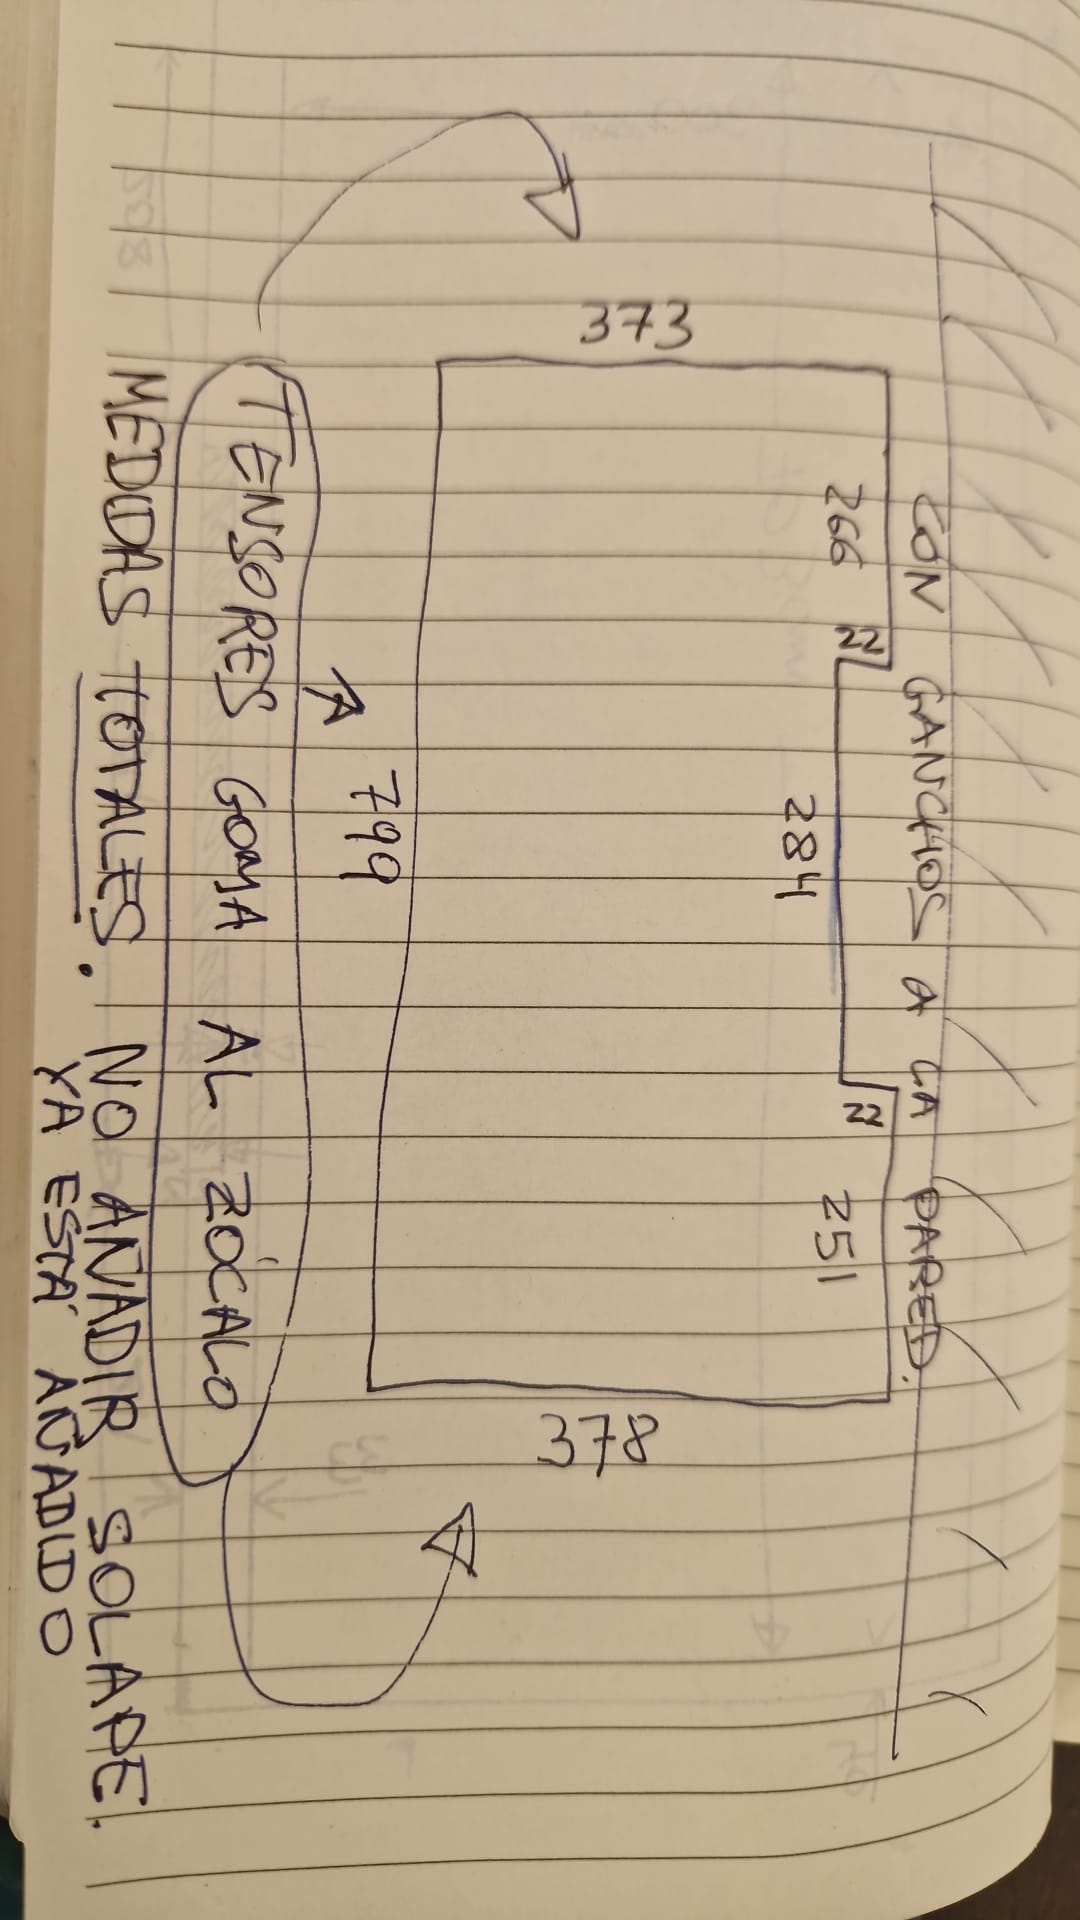 CON GANCHOS A LA PARED.
266
22
284
22
251
373
378
799
TENSORES GOMA AL ZÓCALO
MEDIDAS TOTALES. NO AÑADIR SOLAPE.
YA ESTÁ AÑADIDO